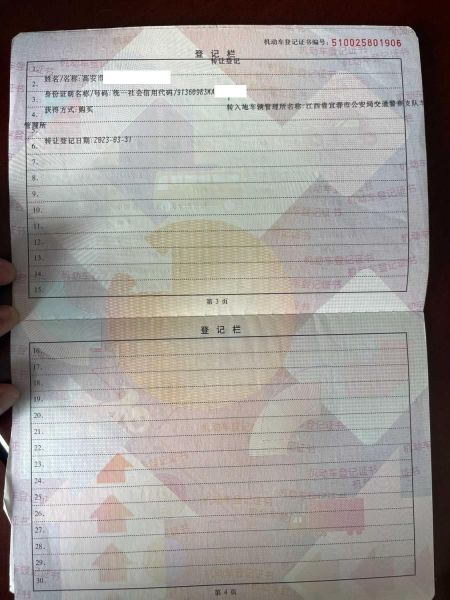 机动车登记证书编号：510025801906
登记栏
1. 转让登记
2. 姓名/名称：高安市
3. 身份证明名称/号码：统一社会信用代码/91360983MA
4. 获得方式：购买 转入地车辆管理所名称：江西省宜春市公安局交通警察支队车
5. 管理所
6. 转让登记日期：2023-03-31
7.
8.
9.
10.
11.
12.
13.
14.
15.
第 3 页
登记栏
16.
17.
18.
19.
20.
21.
22.
23.
24.
25.
26.
27.
28.
29.
30.
第 4 页